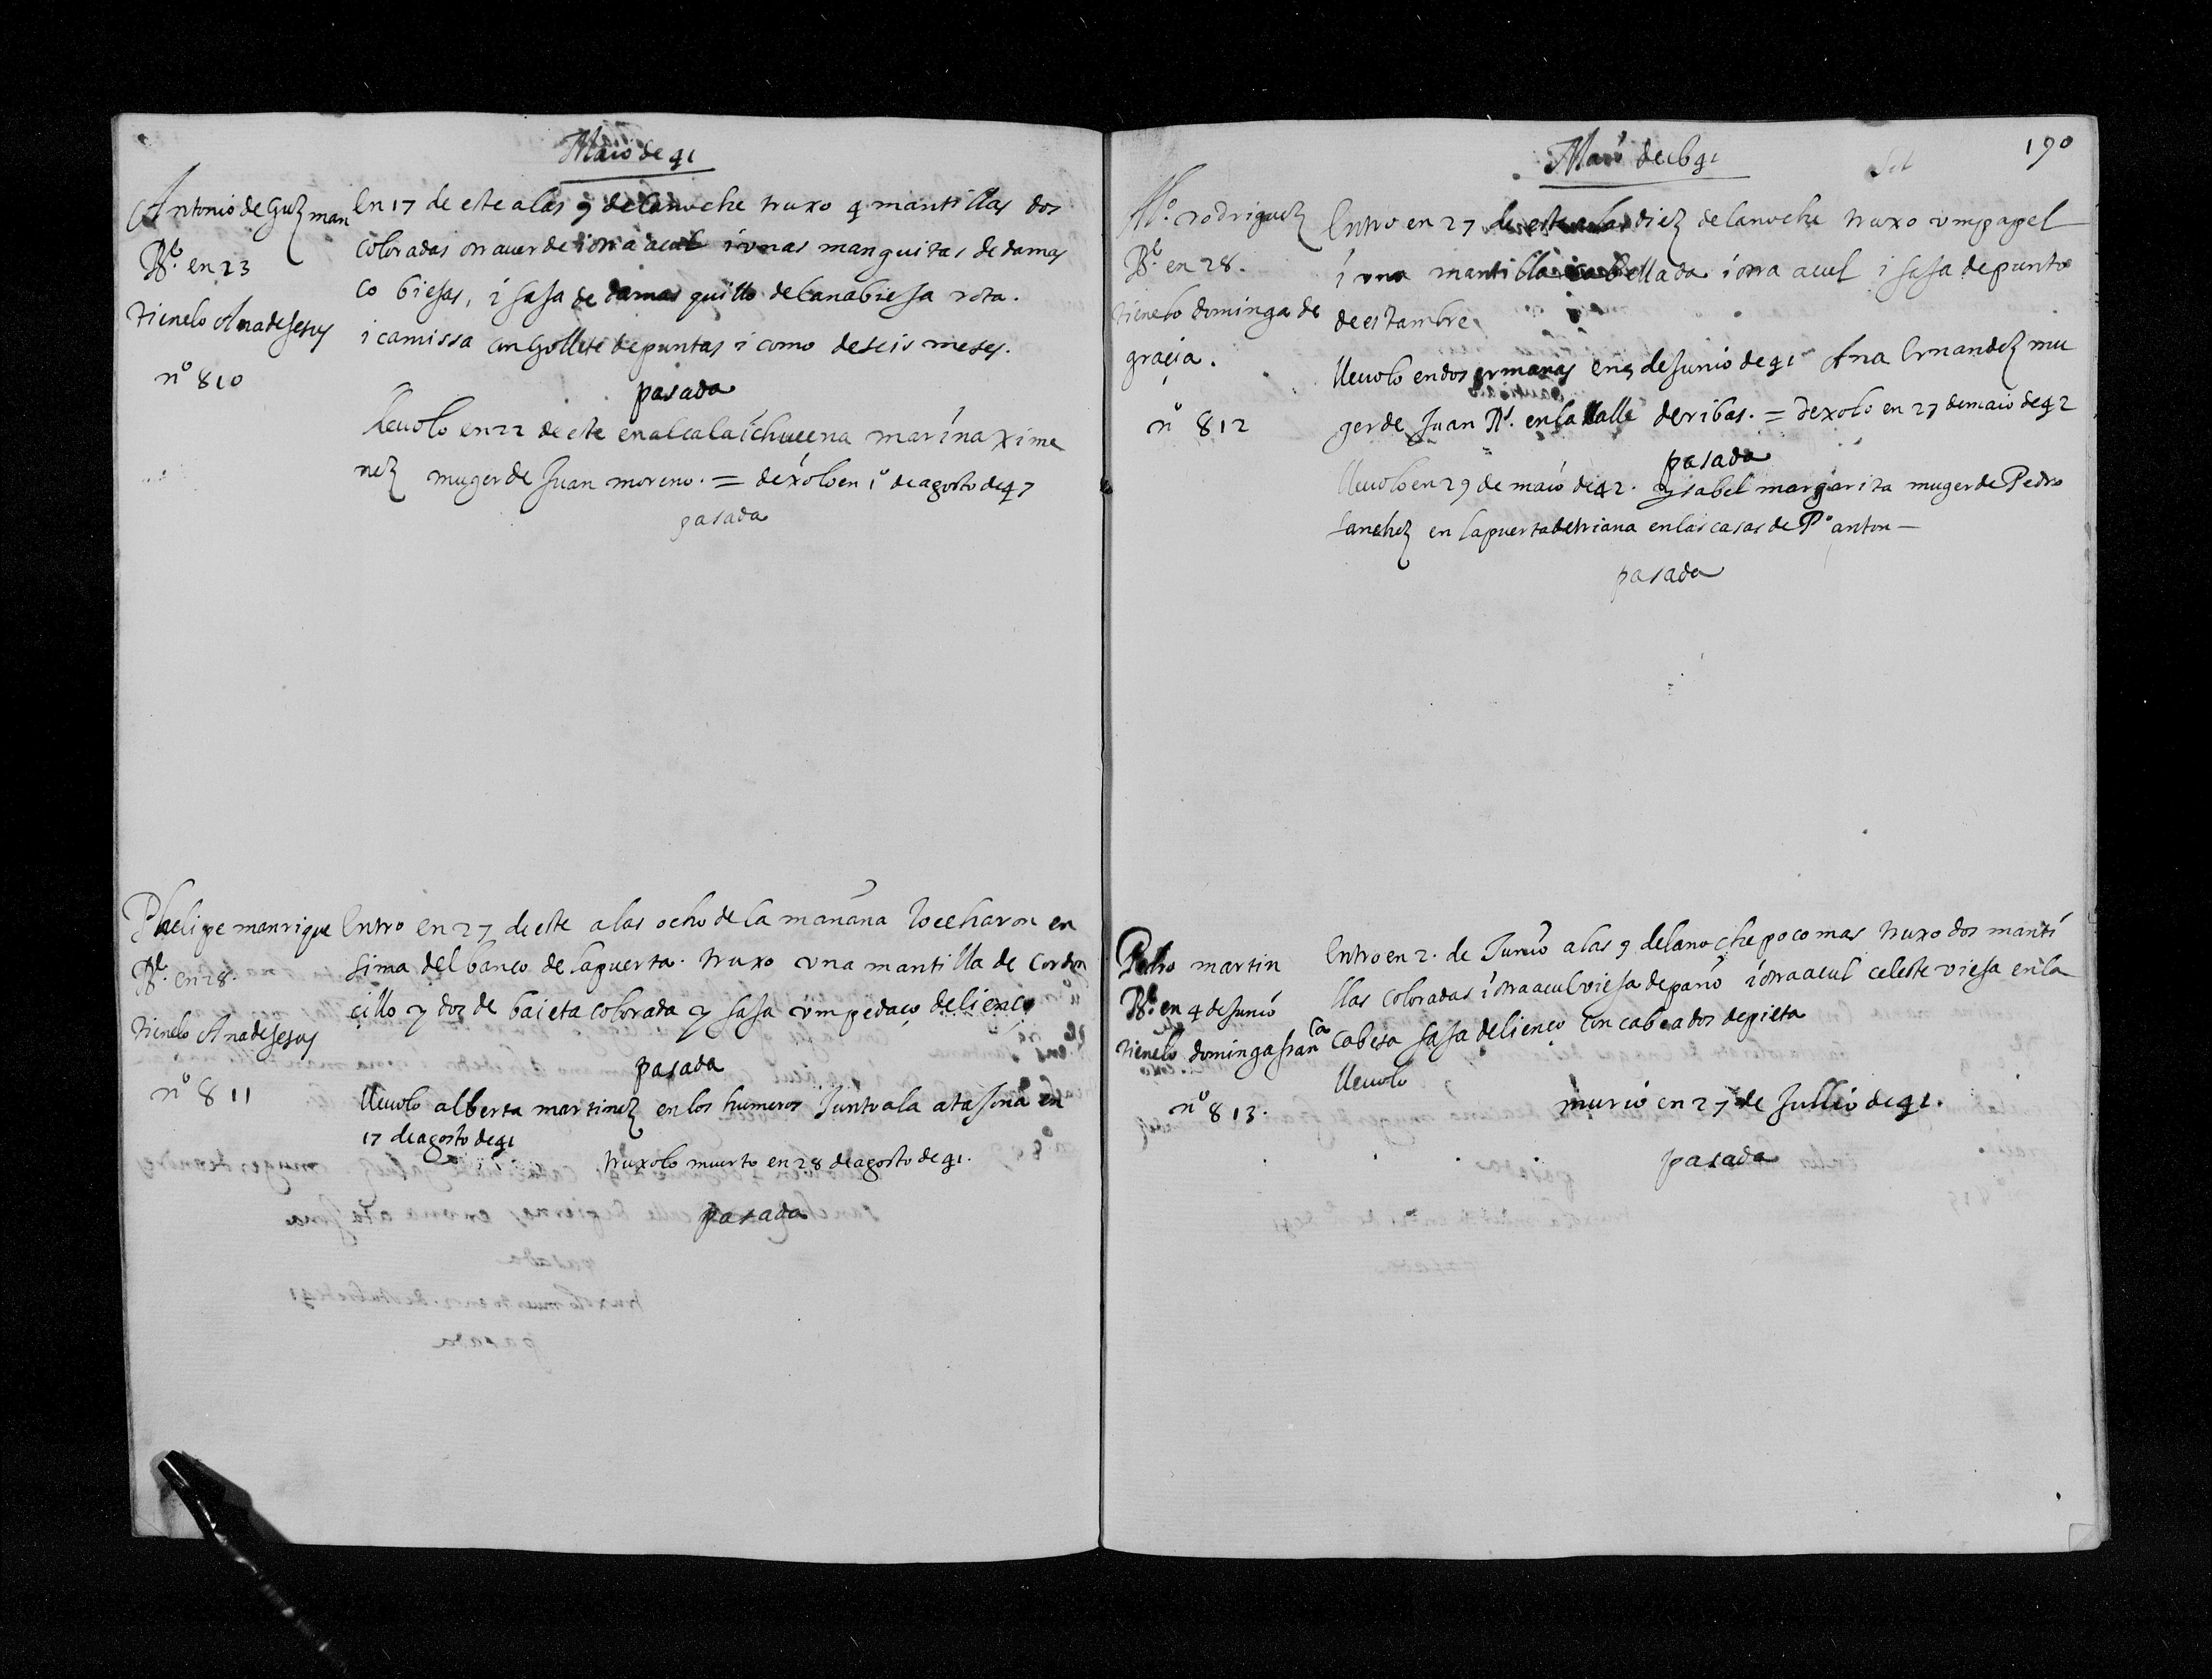 Maio de 41
Antonio de Guzman
Bº. en 23
tienelo Ana de Jesus
nº 810
En 17 de este a las 9 de la noche truxo 4 mantillas dos
coloradas otra uerde i otra acul i unas manguitas de damas
co biejas, i faja de damasquillo de lana bieja rota.
i camissa con gollete de puntas i como de seis meses.
pasada
lleuolo en 22 de este en alcala i chucena marina xime
nez muger de Juan moreno. = dexolo en 1º de agosto de 47
pasada
Phelipe manrique
Bº. en 28.
tienelo Ana de Jesus
nº 811
Entro en 27 de este a las ocho de la mañana lo echaron en
sima del banco de la puerta. truxo una mantilla de cordon
cillo y dos de baieta colorada y faja um pedaço de lienço
pasada
lleuolo alberta martinez en los humeros Junto a la atajona en
17 de agosto de 41
truxolo muerto en 28 de agosto de 41.
pasada
190
Maio de 641
Alº. rodriguez
Bº. en 28.
tienelo dominga de
graçia.
nº 812
Entro en 27 de este a las diez de la noche truxo um papel
i una mantilla cabellada i otra acul i faja de punto
de estambre
lleuolo en dos ermanas en 5 de Junio de 41 Ana Ernandez mu
ger de Juan Rs. en la calle de ribas. = dexolo en 27 de maio de 42
pasada
lleuolo en 29 de maio de 42. ysabel margarita muger de Pedro
sanchez en la puerta de triana en las casas de Pº anton
pasada
Pedro martin
Bº. en 4 de Junio
tienelo dominga franca
nº 813.
Entro en 2. de Junio a las 9 de la noche poco mas truxo dos manti
llas coloradas i otra acul vieja de paño i otra acul celeste vieja en la
cabesa faja de lienço con cabeados de pieta
lleuolo
murio en 27 de Jullio de 41.
pasada